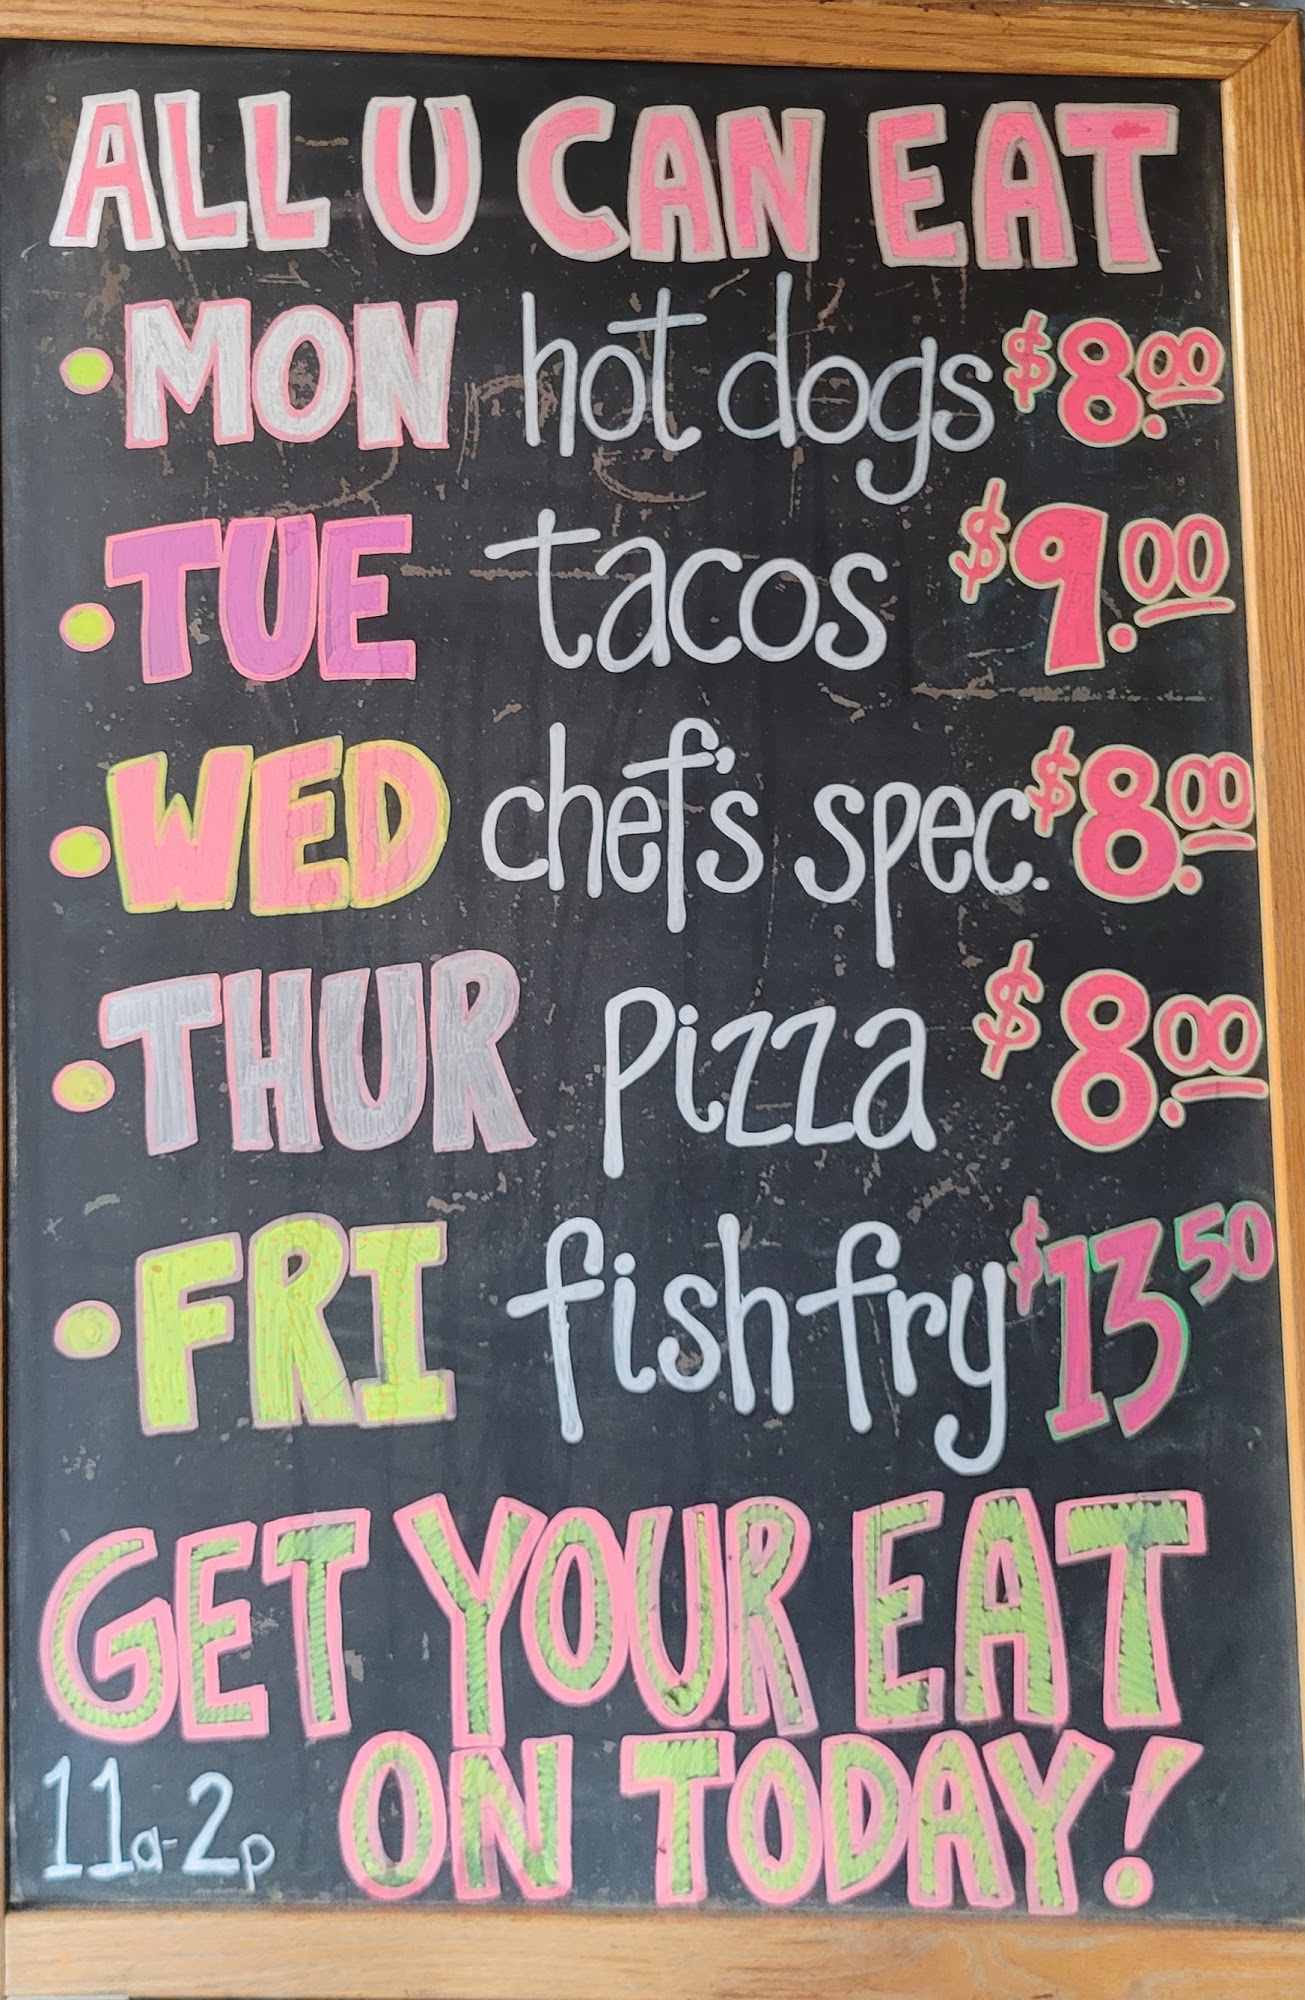 ALL U CAN EAT
•MON hot dogs $8.00
•TUE tacos $9.00
•WED chef's spec. $8.00
•THUR pizza $8.00
•FRI fish fry $13 50
GET YOUR EAT
11a-2p ON TODAY!